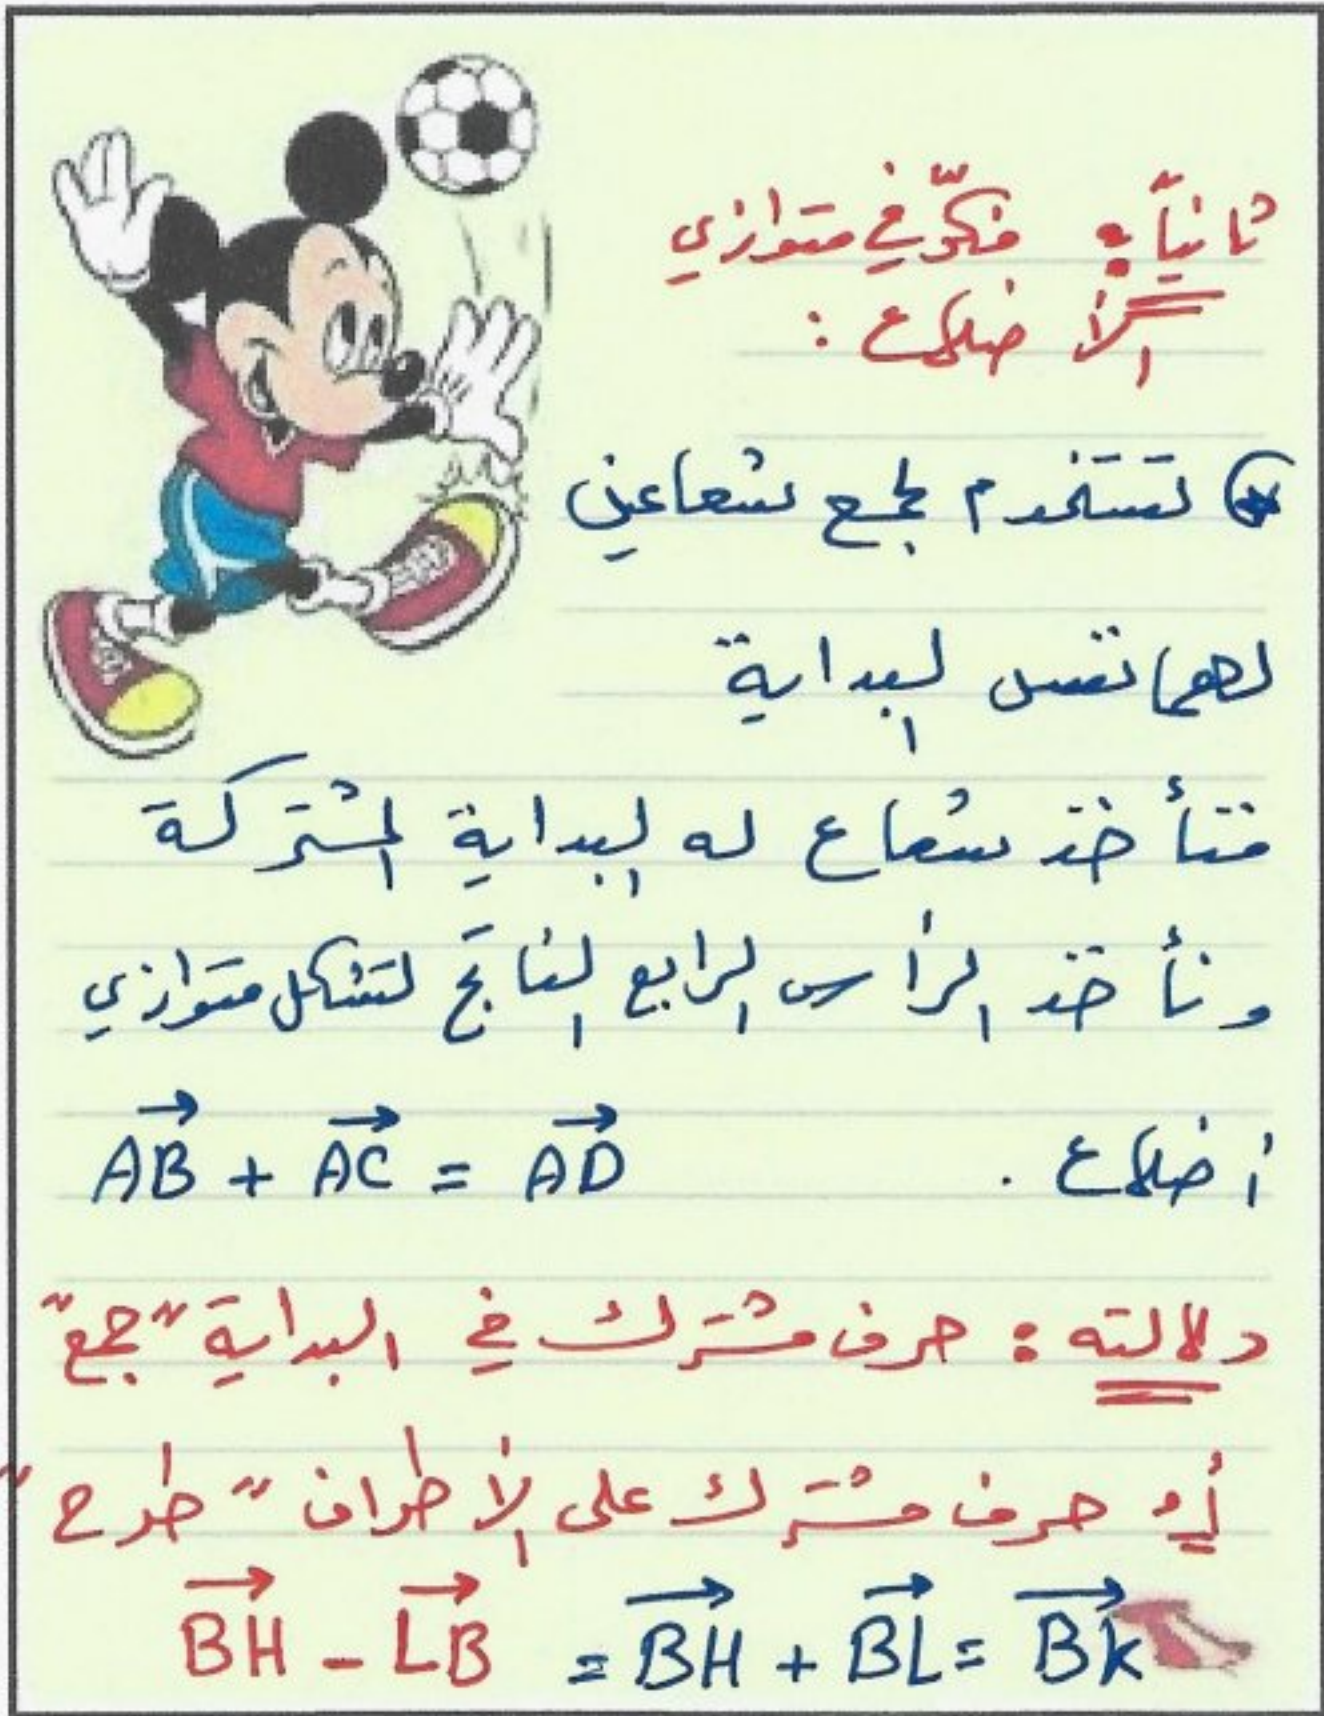 ثانياً: فكّر في متوازي
الأضلاع:
تستخدم لجمع شعاعين
لهما نفس البداية
فنأخذ شعاع له البداية المشتركة
ونأخذ الرأس الرابع الناتج لتشكل متوازي
أضلاع. AB + AC = AD
دلالته: حرف مشترك في البداية "جمع"
أو حرف مشترك على الأطراف "طرح"
BH - LB = BH + BL = Bk